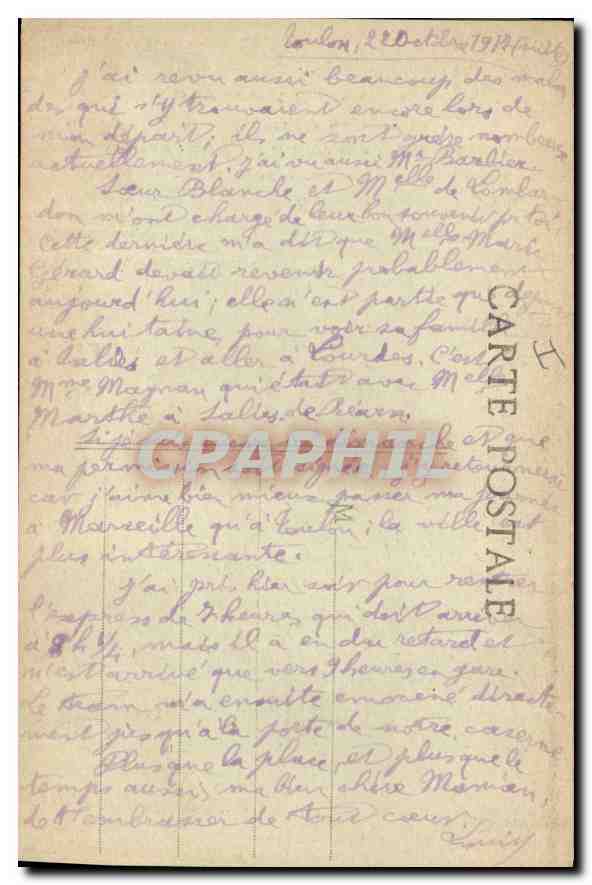 Toulon, 22 Octobre 1917 (suite)
J'ai revu aussi beaucoup des mala
des qui s'y trouvaient encore lors de
mon départ; ils ne sont guère nombreux
actuellement. J'ai vu aussi Mr Barbier.
Sœur Blanche et Melle de Lombar
don m'ont chargé de leur bon souvenir pr toi.
Cette dernière m'a dit que Melle Marie
Gérard devait revenir probablement
aujourd'hui; elle n'est partie que depuis
une huitaine, pour voir sa famille
à Salies et aller à Lourdes. C'est
Mme Magnan qui était avec Melle
Marthe à Salies-de-Béarn.
Si je dimanche et que
ma permission soit signée, j'y retournerai
car j'aime bien mieux passer ma journée
à Marseille qu'à Toulon; la ville est
plus intéressante.
J'ai pris hier soir pour rentrer
l'express de 7 heures qui doit arriver
à 8h 1/4, mais il a eu du retard et
n'est arrivé que vers 9 heures en gare.
Le tram m'a ensuite emmené directe-
ment jusqu'à la porte de notre caserne
Plus que la place, et plus que le
temps aussi, ma bien chère Maman,
de t'embrasser de tout cœur.
Louis
CARTE POSTALE
I
M
CPAPHIL